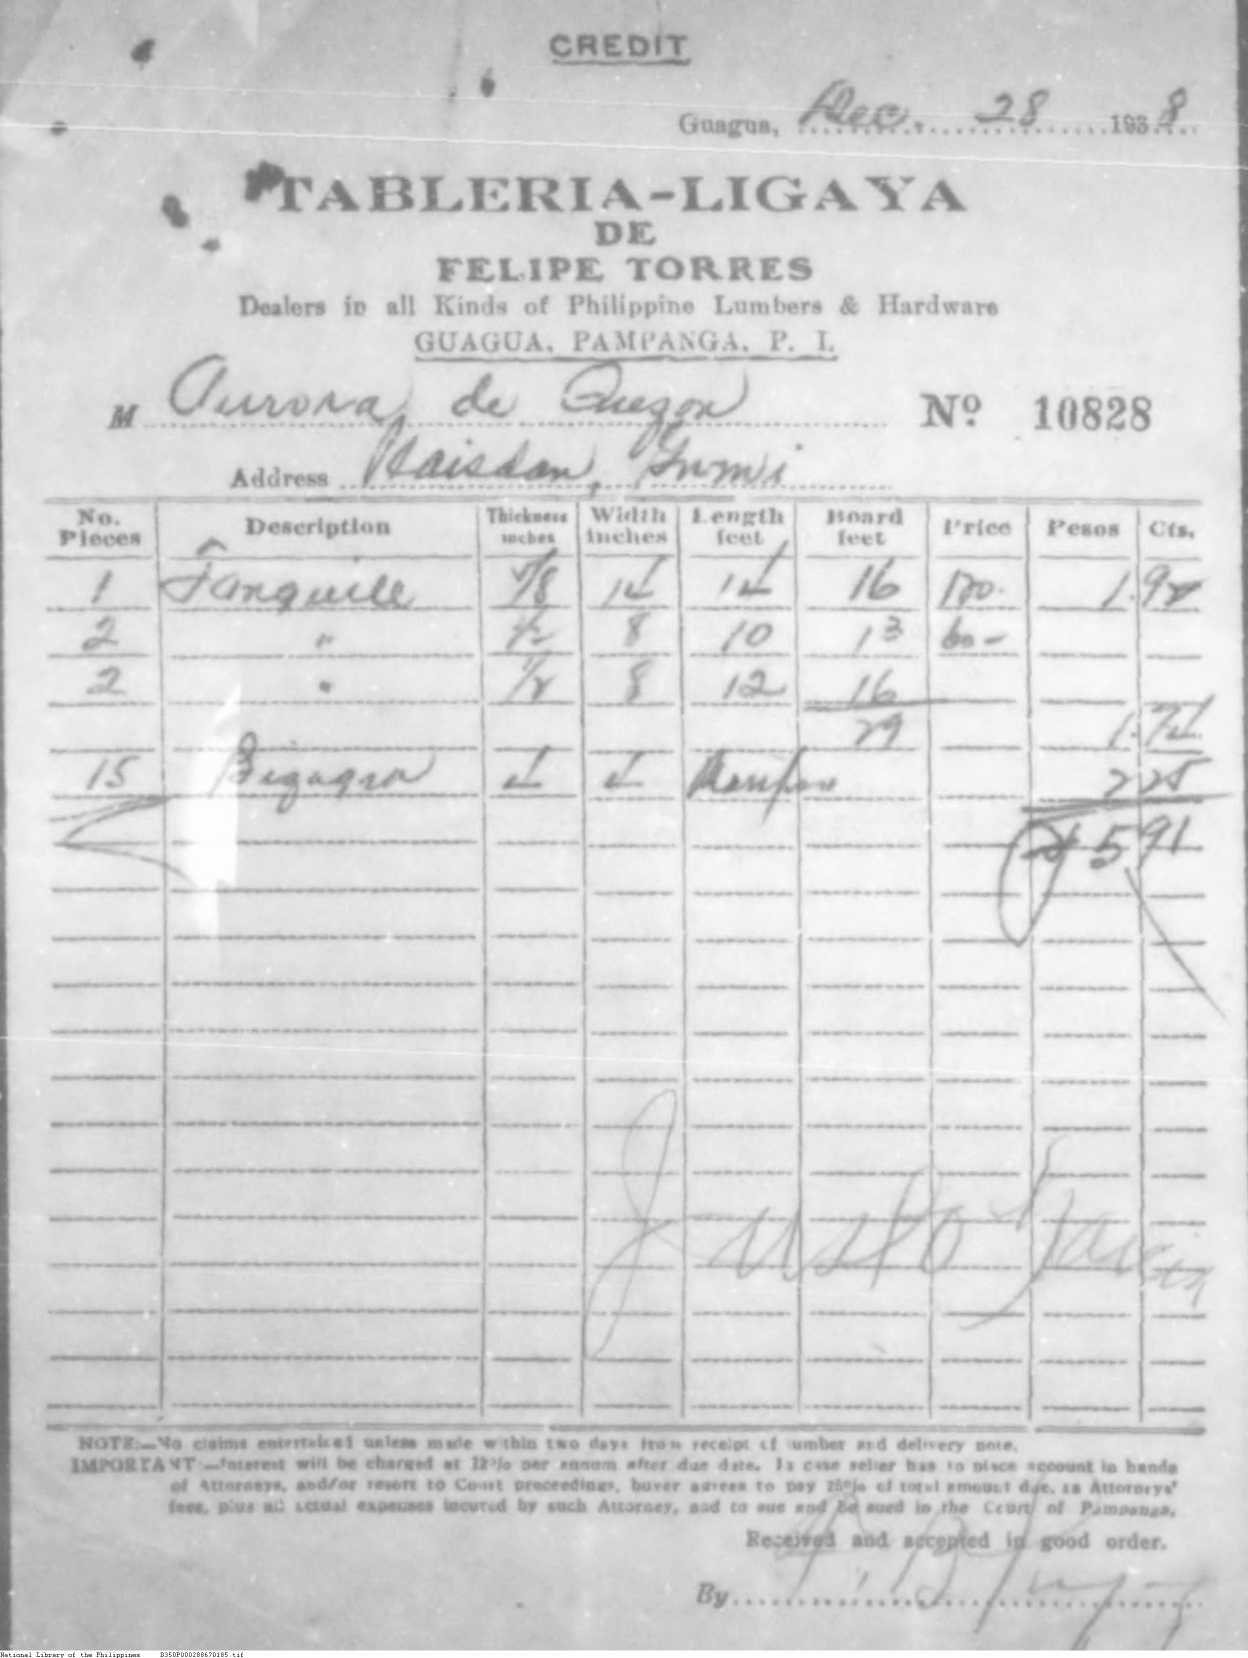 CREDIT
Guagua, Dec. 28 1938
TABLERIA-LIGAYA
DE
FELIPE TORRES
Dealers in all Kinds of Philippine Lumbers & Hardware
GUAGUA, PAMPANGA, P. I.
M Aurora de Quezon Nº 10828
Address
No. Pieces Description Thickness inches Width inches Length feet Board feet Price Pesos Cts.
1 Tanguile 7/8 14 14 16 120. 1.92
2 " 1/2 8 10 13 60-
2 " 1/2 8 12 16
29 1.74
15 1 2 25
₱ 5 91
Justo
NOTE:—No claims entertained unless made within two days from receipt of lumber and delivery note.
IMPORTANT—Interest will be charged at 12% per annum after due date. In case seller has to place account in hands
of Attorneys, and/or resort to Court proceedings, buyer agrees to pay 25% of total amount due, as Attorneys'
fees, plus all actual expenses incured by such Attorney, and to sue and be sued in the Court of Pampanga.
Received and accepted in good order.
By
National Library of the Philippines D350P000288670185.tif